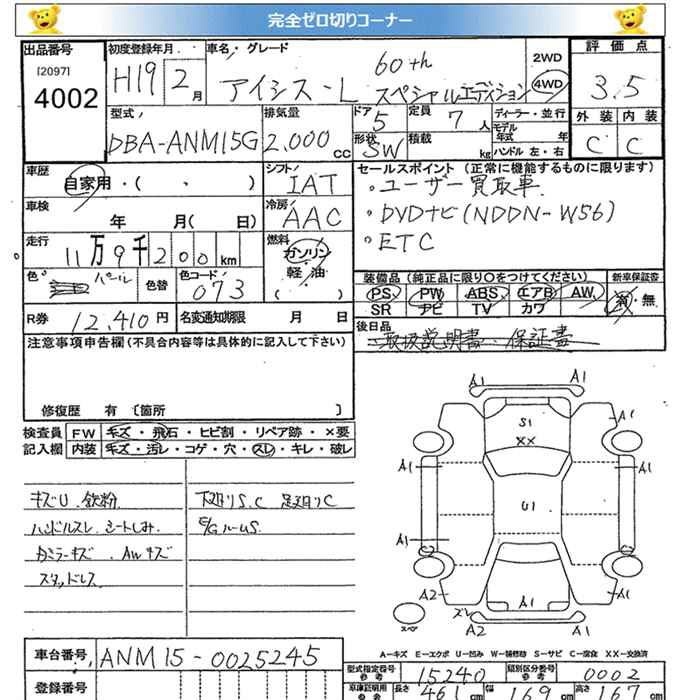 完全ゼロ切りコーナー
出品番号
[2097]
4002
初度登録年月
H19 2月
車名・グレード
アイシス-L 60th
スペシャルエディション
2WD
4WD
評価点
3.5
外装 内装
C C
型式
DBA-ANM15G
排気量
2,000cc
ドア
5
形状
SW
定員
7人
積載
kg
ディーラー・並行
モデル年式 年
ハンドル 左・右
車歴
自家用・( ・ )
シフト
IAT
車検
年 月( 日)
冷房
AAC
走行
11万9千200km
燃料
ガソリン
軽・油
( )
色
パール
色替
色コード
073
R券 12,410円
名変通知期限 月 日
セールスポイント (正常に機能するものに限ります)
・ユーザー買取車
・DVDナビ(NDDN-W56)
・ETC
装備品 (純正品に限り○をつけてください)
PS PW ABS エアB AW
SR ナビ TV カワ
新車保証書
有・無
後日品
取扱説明書 保証書
注意事項申告欄(不具合内容等は具体的に記入して下さい)
修復歴 有 〔箇所 〕
検査員記入欄
FW キズ・飛石・ヒビ割・リペア跡・×要
内装 キズ・汚レ・コゲ・穴・スレ・キレ・破レ
キズU 鉄粉
ハンドルスレ シートしみ
カミラーキズ AWキズ
スタッドレス
下廻りS.C 足廻りC
E/GルームS
A1 A1
S1
XX
A1
A1 A1
U1
A1
A2 ズレ A2 A2
スペ
A-キズ E-エクボ U-凹み W-補修跡 S-サビ C-腐食 XX-交換済
車台番号 ANM15-0025245
登録番号
型式指定番号 15240
類別区分番号 0002
車庫証明用参考
長さ 461cm
幅 169cm
高さ 167cm